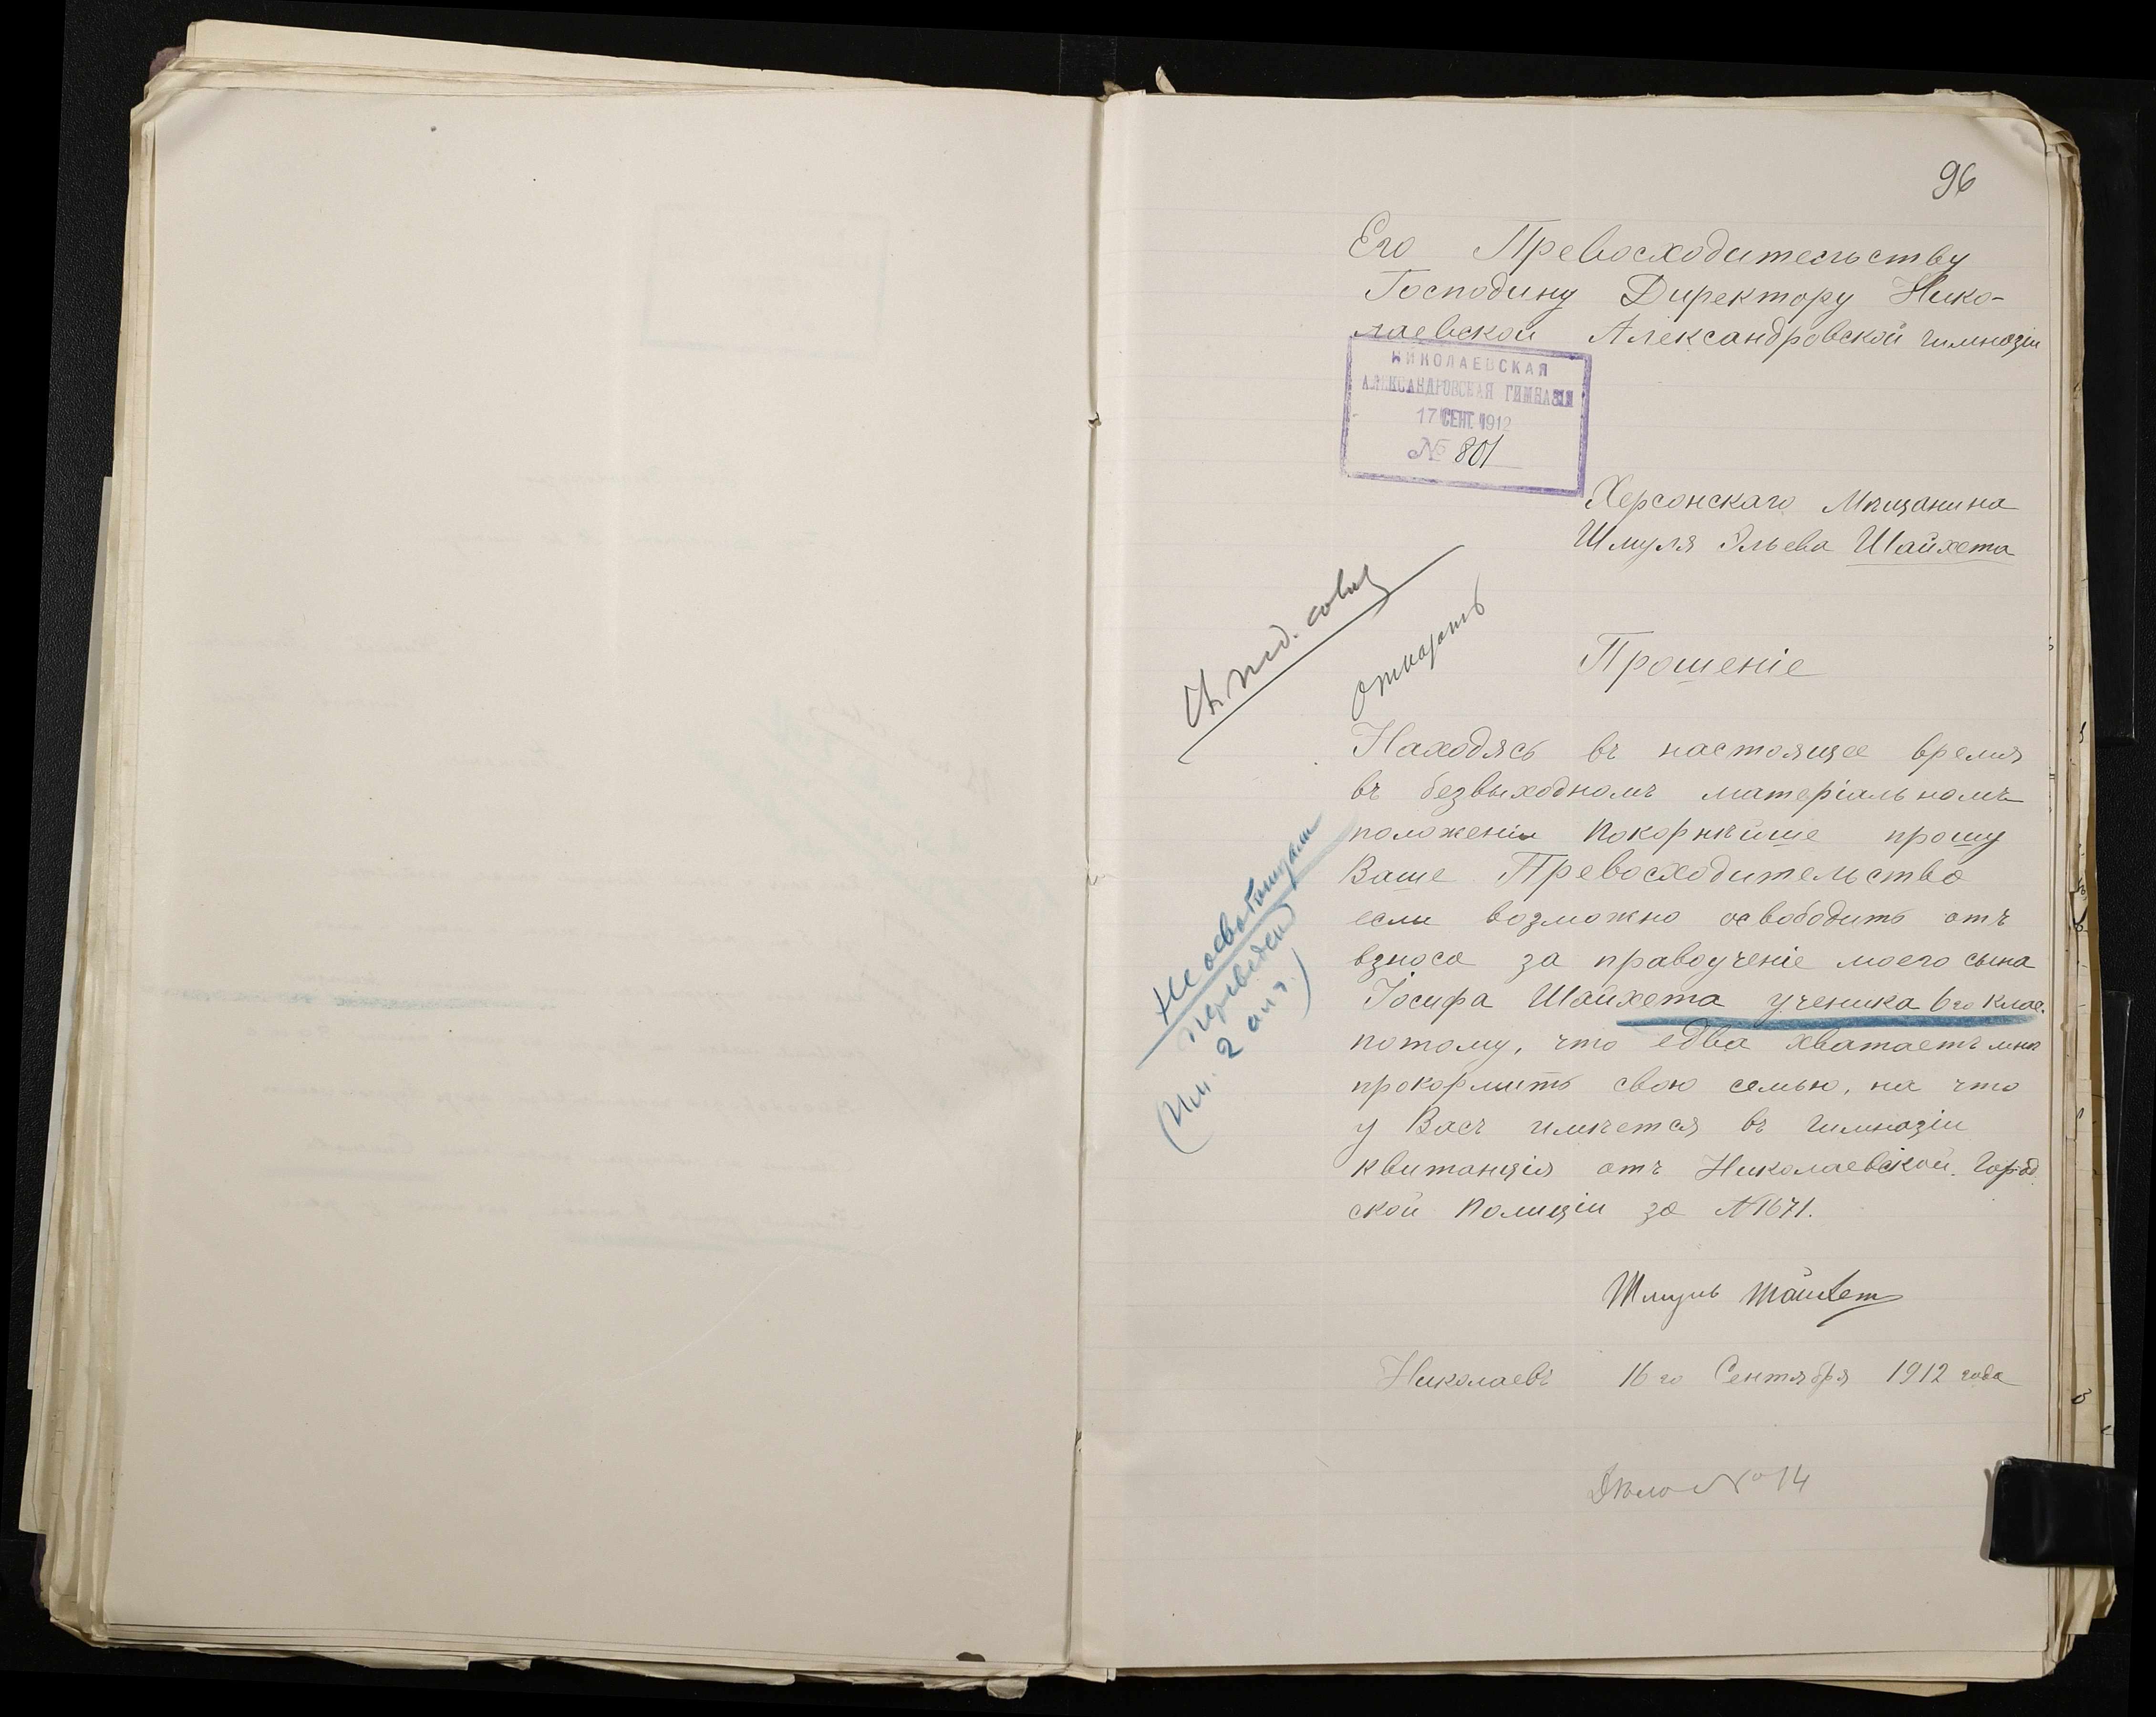 96
Его Превосходительству
Господину Директору Нико-
лаевской Александровской гимназіи
НИКОЛАЕВСКАЯ
АЛЕКСАНДРОВСКАЯ ГИМНАЗІЯ
17 СЕНТ. 1912
№ 801
Херсонскаго Мѣщанина
Шмуля Эльева Шайхета
Въ пед. совѣт
Отказать
Прошеніе
Находясь въ настоящее время
въ безвыходномъ матеріальномъ
положеніи покорнѣйше прошу
Ваше Превосходительство
если возможно освободить отъ
взноса за правоученіе моего сына
Іосифа Шайхета ученика 6го клас.
потому, что едва хватаетъ мнѣ
прокормить свою семью, на что
у Васъ имѣется въ гимназіи
квитанція отъ Николаевской Город
ской Полиціи за №1671.
Не освобождать
переведен
2
Шмуль Шайхет
Николаевъ 16го Сентября 1912 года
Дѣло № 14